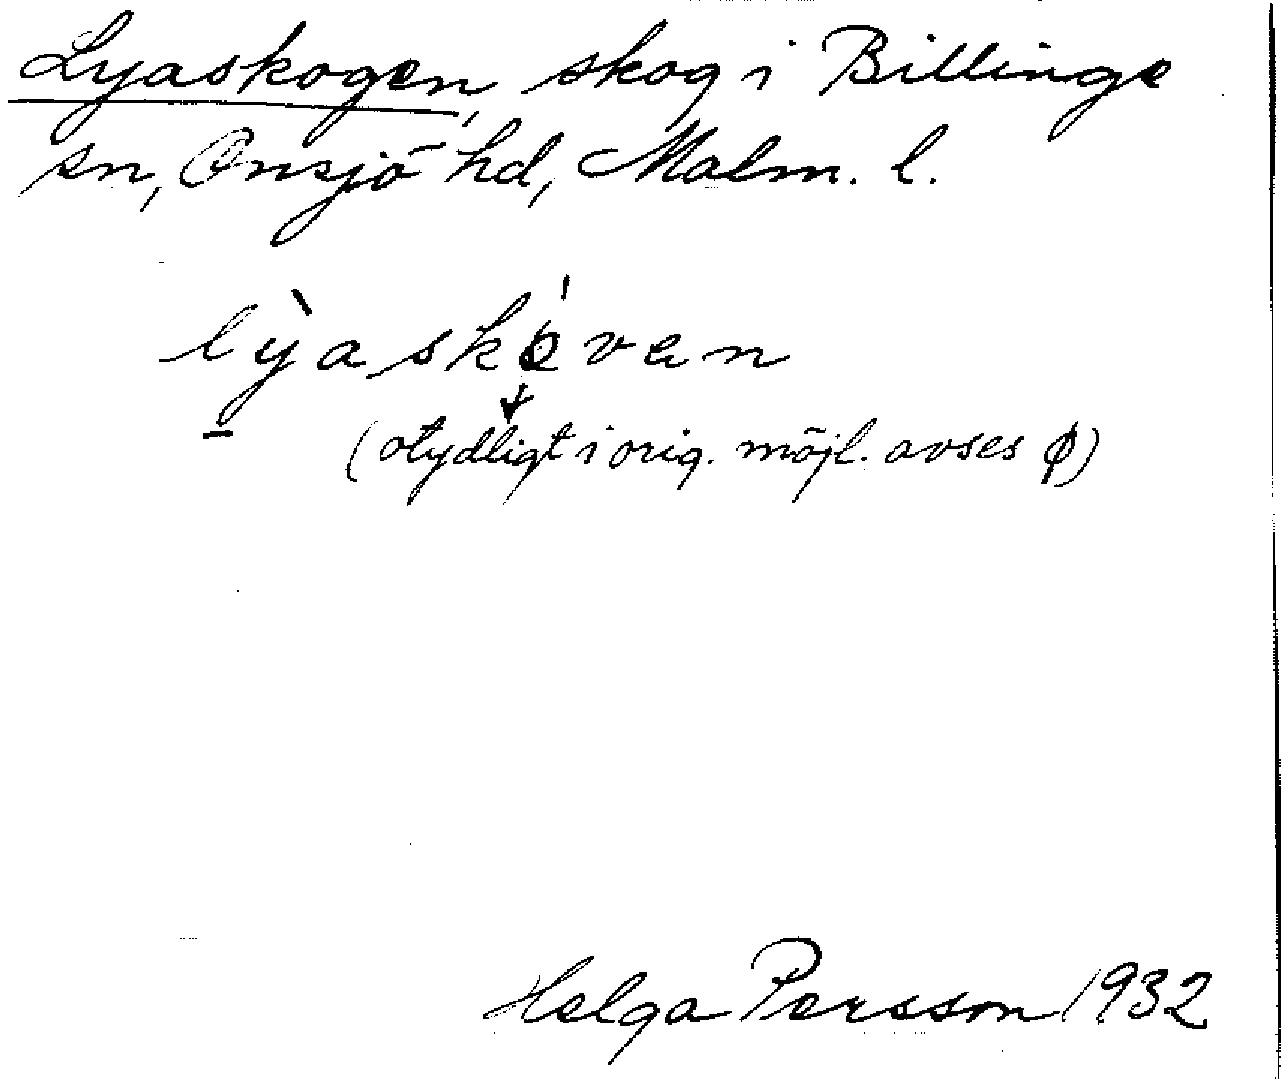 Lyaskogen, skog i Billinge
sn, Onsjö hd, Malm. l.
lỳaskóven
(otydligt i orig. möjl. avses ф)
Helga Persson 1932